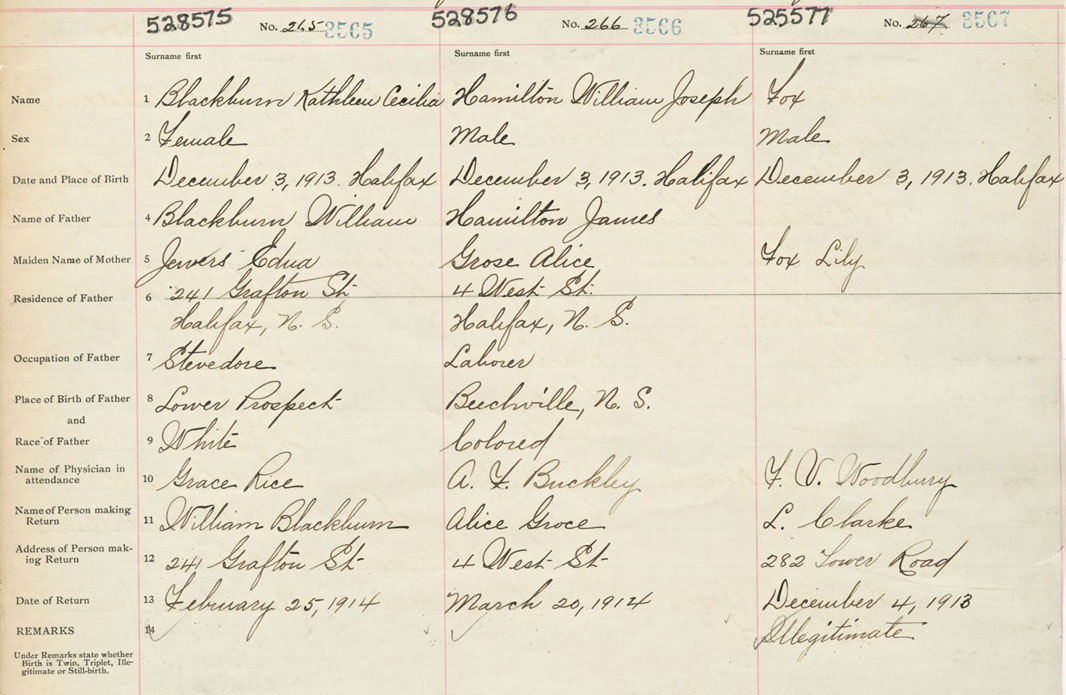 528575 No. 265 3565 528576 No. 266 3566 525577 No. 267 3567
Surname first Surname first Surname first
Name 1 Blackburn Kathleen Cecilia Hamilton William Joseph Fox
Sex 2 Female Male Male
Date and Place of Birth December 3, 1913. Halifax December 3, 1913. Halifax December 3, 1913. Halifax
Name of Father 4 Blackburn William Hamilton James
Maiden Name of Mother 5 Jewers Edna Grose Alice Fox Lily
Residence of Father 6 241 Grafton St. 4 West St.
Halifax, N. S. Halifax, N. S.
Occupation of Father 7 Stevedore Laborer
Place of Birth of Father 8 Lower Prospect Beechville, N. S.
and
Race of Father 9 White Colored
Name of Physician in attendance 10 Grace Rice A. F. Buckley F. V. Woodbury
Name of Person making Return 11 William Blackburn Alice Groce L. Clarke
Address of Person mak-ing Return 12 241 Grafton St. 4 West St. 282 Tower Road
Date of Return 13 February 25, 1914 March 20, 1914 December 4, 1913
REMARKS 14 Illegitimate
Under Remarks state whether
Birth is Twin, Triplet, Ille-
gitimate or Still-birth.